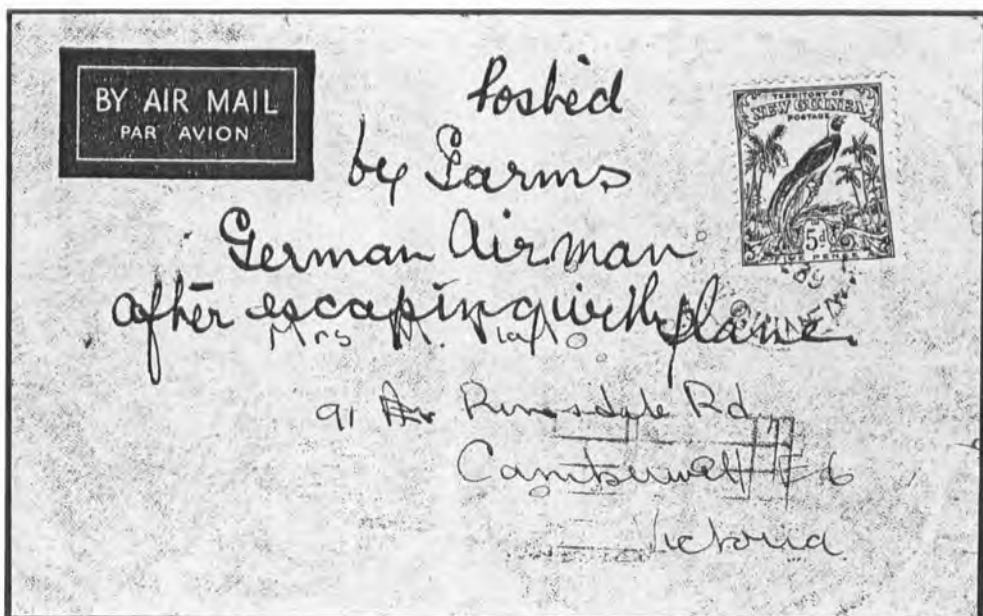 BY AIR MAIL
PAR AVION
Posted
by Garms
German Airman
after escaping with plane.
TERRITORY OF
NEW GUINEA
POSTAGE
5d
FIVE PENCE
Mrs M.
91 Rd
Camberwell E6
Victoria